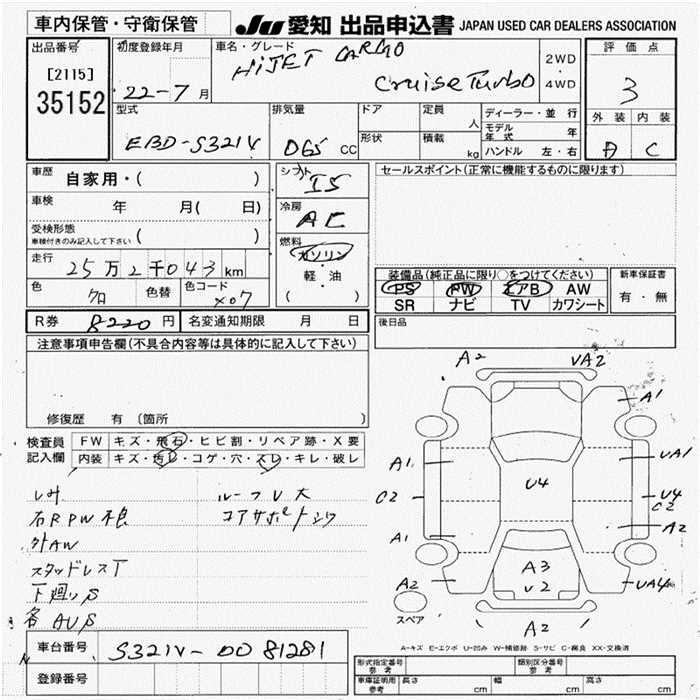 車内保管・守衛保管
JU 愛知 出品申込書 JAPAN USED CAR DEALERS ASSOCIATION
出品番号
[2115]
35152
初度登録年月
22-7 月
車名・グレード
HiJET CARGO
Cruise Turbo
2WD
4WD
評価点
3
外装 内装
A C
型式
EBD-S321V
排気量
065 CC
ドア
形状
定員
人
積載
kg
ディーラー・並行
モデル年式 年
ハンドル 左・右
車歴
自家用・( )
車検 年 月( 日)
受検形態
車検付きのみ記入して下さい ( )
走行
25万2千043km
色 クロ 色替 色コード X07
シフト I5
冷房 AC
燃料
ガソリン
軽・油
( )
セールスポイント(正常に機能するものに限ります)
装備品(純正品に限り○をつけてください)
PS PW エアB AW
SR ナビ TV カワシート
新車保証書
有・無
後日品
R券 8220円
名変通知期限 月 日
注意事項申告欄(不具合内容等は具体的に記入して下さい)
修復歴 有 〔箇所 〕
検査員記入欄
FW キズ・飛石・ヒビ割・リペア跡・X要
内装 キズ・汚レ・コゲ・穴・スレ・キレ・破レ
シミ
右RPW不良
外AW
スタッドレスT
下廻りS
各AUS
ルーフU大
コアサポートシワ
A2 VA2
A1
A1 UA1
C2 U4 U4
C2
A1 A2
A2 A3 UA4
V2
スペア
A2
A-キズ E-エクボ U-凹み W-補修跡 S-サビ C-腐食 XX-交換済
車台番号 S321V-0081281
登録番号
形式指定番号
参考
類別区分番号
参考
車庫証明用
参考
長さ cm 幅 cm 高さ cm